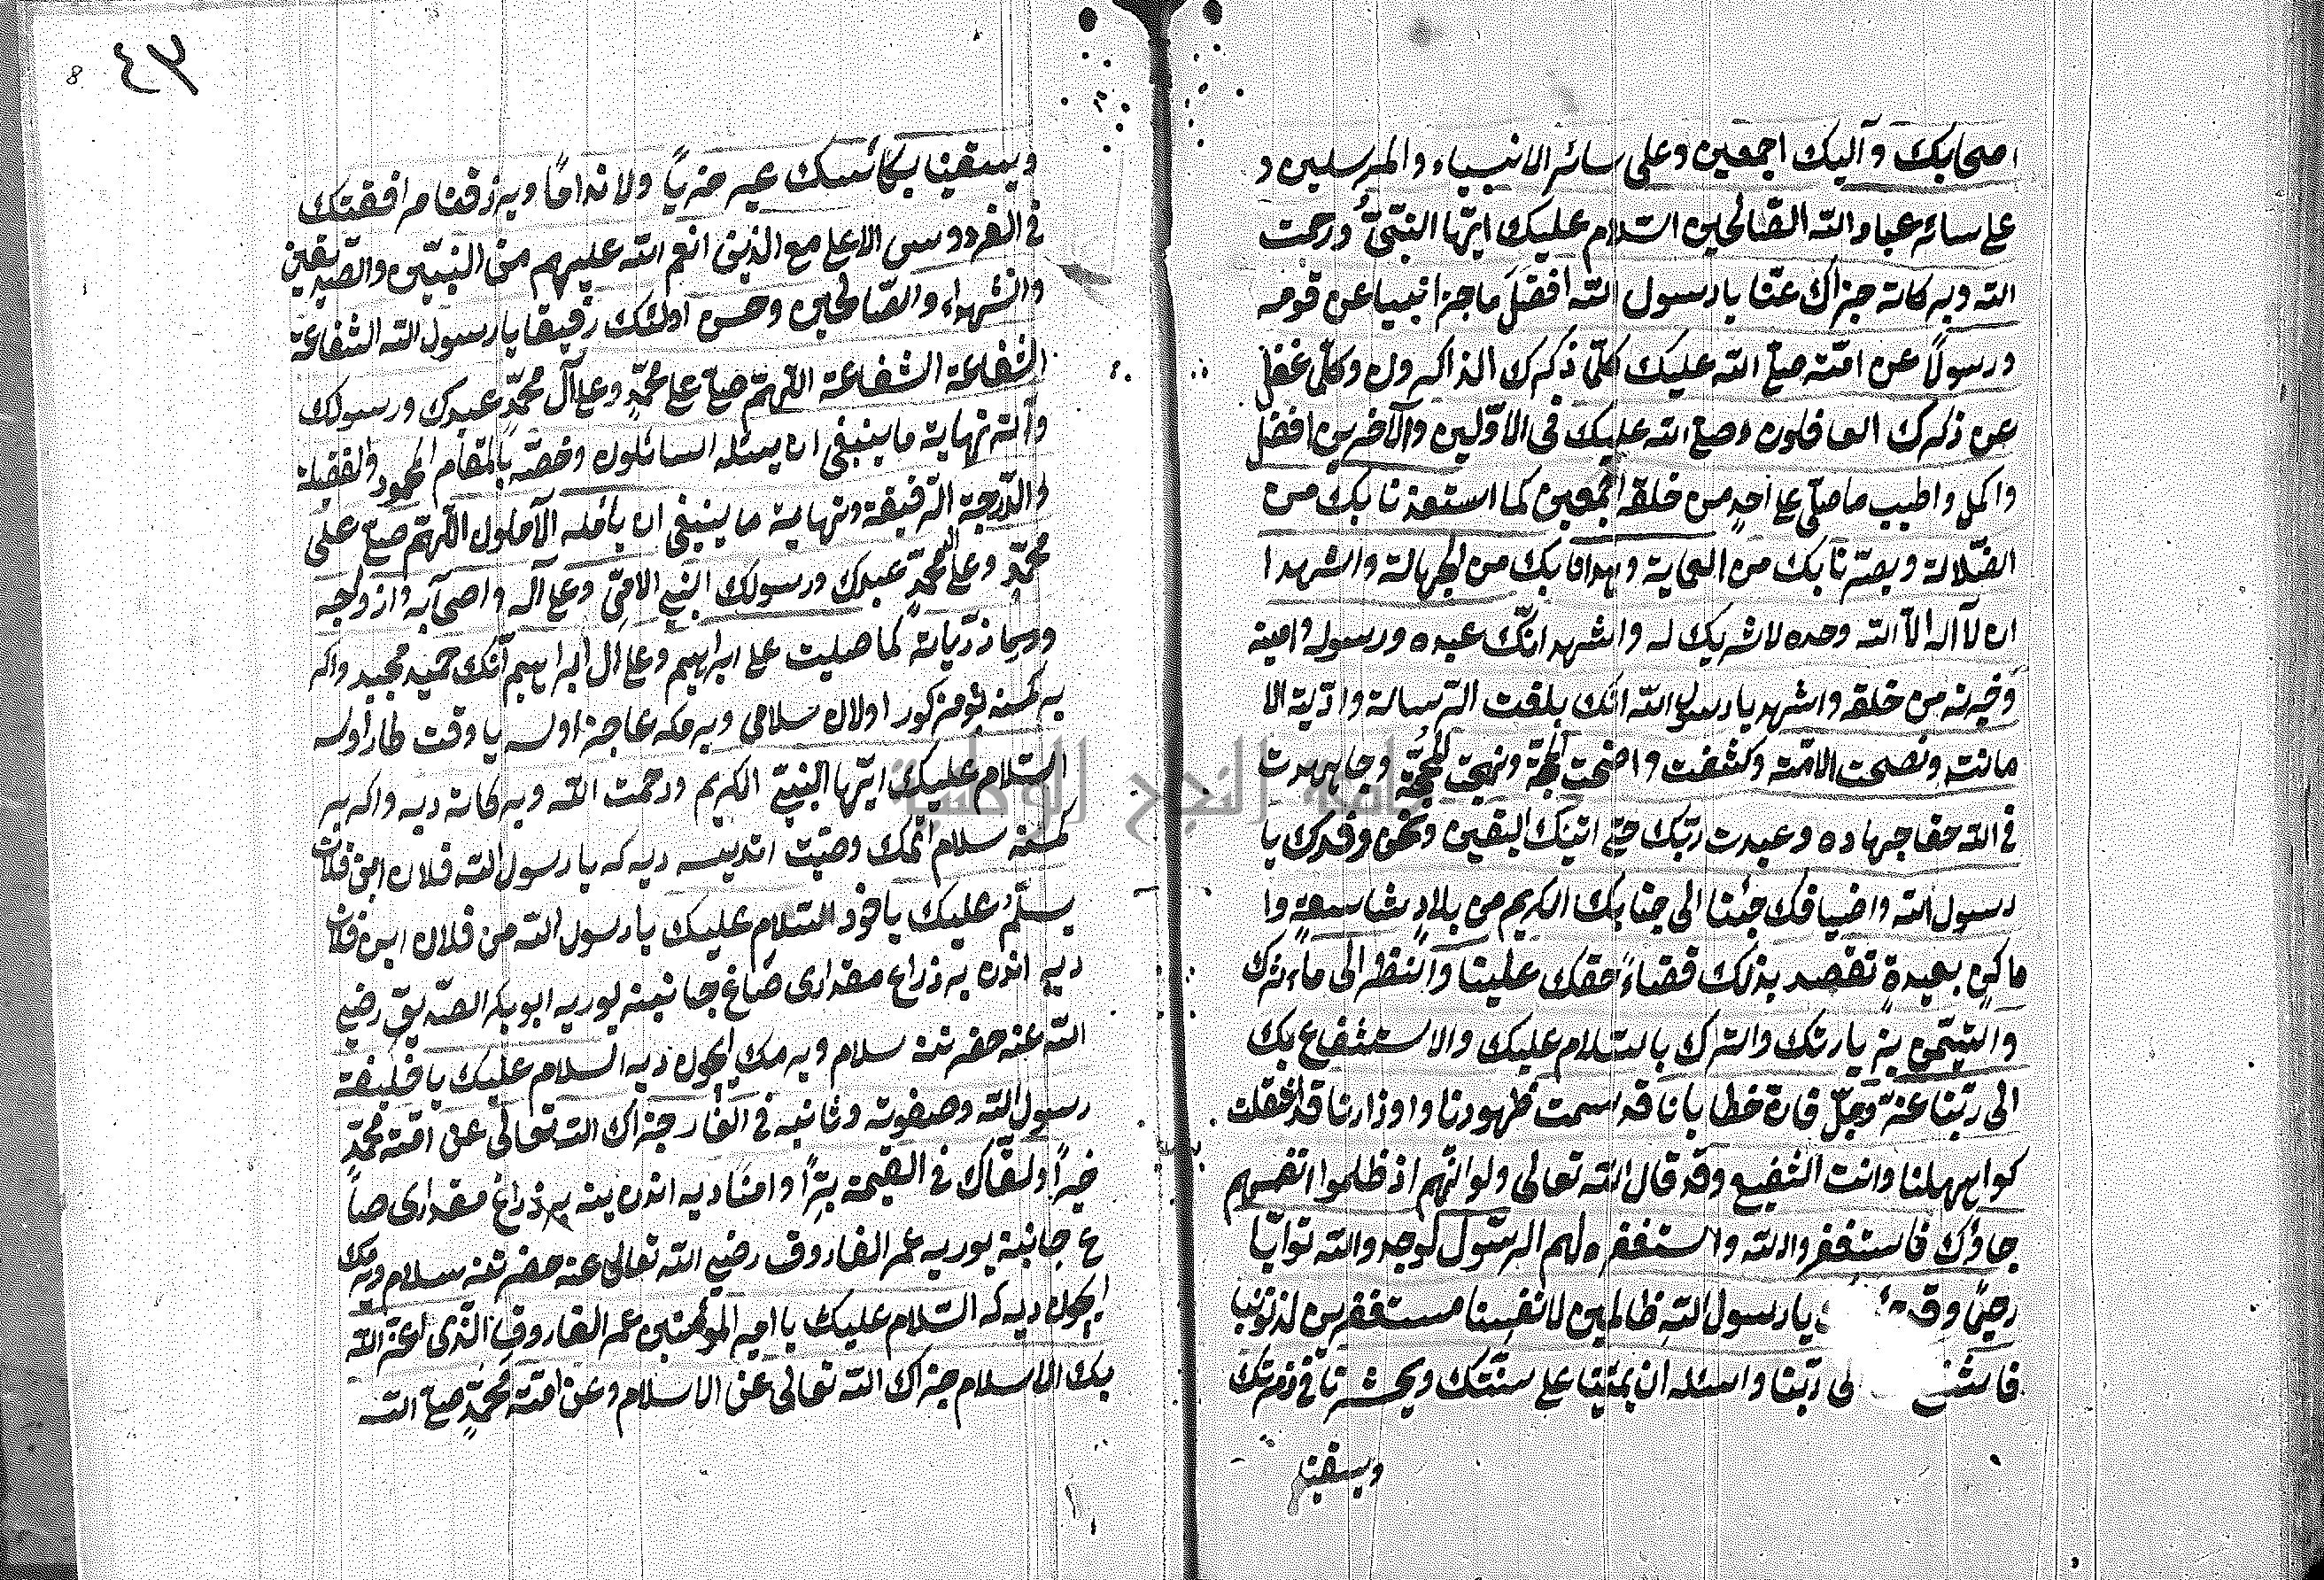 اصحابك وآليك اجمعين وعلى سائر الانبياء والمرسلين و
على سائر عباد الله الصّالحين السّلام عليك ايّها النّبىّ ورحمت
الله وبركاته جزاك عنّا يا رسول الله افضل ما جزا نبيا عن قومه
ورسولًا عن امّته صلّى الله عليك كلّ ذكرك الذاكرون وكلّ غفل
عن ذكرك الغافلون وصلى الله عليك فى الاوّلين والآخرين افضل
واكمل واطيب ما صلّى على احدٍ من خلقه اجمعين كما استعذنا بك من
الضّلالة وبصّرنا بك من العماية وهدانا بك من الجهالة واشهد ا
ان لآ اله الّا الله وحده لا شريك له واشهد انّك عبده ورسوله وامينه
وخيرته من خلقه واشهد يا رسول الله انّك بلغت الرّسالة وادّيت الا
مانت ونصحت الامّة وكشفت واضحت الحجّة ونهجت المحجّة وجاهدت
فى الله حقا جهاده وعبدت ربّك حتى اتيك اليقين ونحن وفدك يا
رسول الله واضيافك جئنا الى جنابك الكريم من بلادٍ شاسعةٍ وا
ماكنٍ بعيدةٍ نقصد بذلك قضاءً حقك علينا والنظر الى ماءثرك
والتيمّن بزيارتك والتبرك بالسّلام عليك والاستشفاع بك
الى ربّنا عزّ وجلّ فان خطايانا قد سمت ظهورنا واوزارنا قد اثقلت
كواهلنا وانت الشفيع وقد قال الله تعالى ولو انّهم اذ ظلموا انفسهم
جاؤك فاستغفروا الله واستغفر لهم الرسّول لوجدوا الله توّابا
رحيمًا وقد يا رسول الله ظالمين لانفسنا مستغفرين لذنوبنا
فاشفع ربّنا واسئله ان يميتنا على سنّتك ويحشرنا فى زمرتك
ويسقينا
٤٣
8
ويسقينا بكأسك غير خزيًا ولا ندامًا ويرزقنا مرافقتك
فى الفردوس الاعلى مع الذين انعم الله عليهم من النّبيّين والصّدّيقين
والشهداء والصّالحين وحسن اولئك رفيقا يا رسول الله الشفاعة
الشفاعة الشفاعة اللّهمّ صلّ على محمّدٍ وعلى آل محمّدٍ عبدك ورسولك
وآته نهاية ما ينبغى ان يسئله السائلون وخصّه بالمقام المحمود والفضيلة
والدّرجة الرّفيعة ونهاية ما ينبغى ان يأمله الآملون اللّهمّ صلّ على
محمّدٍ وعلى آل محمّدٍ عبدك ورسولك النبى الامّىّ وعلى آله واصحابه وازواجه
وذرّياته كما صليت على ابراهيم وعلى آل ابراهيم انّك حميد مجيد واكر
بر كمسنه بو مذكور اولان سلامى ويرمكه عاجز اولسه يا وقت طار اولسه
السّلام عليك ايّها النّبىّ الكريم ورحمت الله وبركاته ديه واكر بر
كمسنه سلام اتمك وصيّت اتديسه ديه كه يا رسول الله فلان ابن فلان
يسلّم عليك ياخود السّلام عليك يا رسول الله من فلان ابن فلان
ديه اندن بر ذراع مقدارى صاغ جانبنه يوريه ابو بكر الصّدّيق رضى
الله عنه حضرتنه سلام ويرمك ايچون ديه السلام عليك يا خليفة
رسول الله وصفوته وثانيه فى الغار جزاك الله تعالى عن امّة محمّدٍ
خيرًا ولقّاك فى القيمة برًّا وامنًا ديه اندن ينه بر ذراع مقدارى صا
غ جانبنه يوريه عمر الفاروق رضى الله تعالى عنه حضرتنه سلام ويرمك
ايچون ديه كه السّلام عليك يا امير المؤمنين عمر الفاروق الّذى اعزّ الله
بك الاسلام جزاك الله تعالى عن الاسلام وعن امّة محمّدٍ صلى الله
جامعة النجاح الوطنية